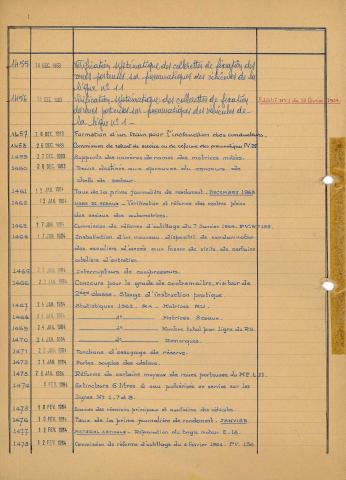 1455 18 DEC. 1963 Vérification systématique des collerettes de fixation des
roues porteuses sur pneumatiques des véhicules de la
ligne n° 11
1456 DEC. 1963 Vérification systématique des collerettes de fixation
roues porteuses sur pneumatiques des véhicules de
la ligne n° 1.-
1457 DEC. 1963 Formation d'un train pour l'instruction des conducteurs.
1458 26 DEC. 1963 Commission de retrait de service ou de réforme des pneumatiques PV.28
1459 27 DEC. 1963 Supports des numéros de rames des motrices mixtes.
1460 28 DEC. 1963 Tenues destinées aux épreuves du concours de
chefs de secteur.
1461 JAN. 1964 Taux de la prime journalière de rendement. DECEMBRE 1963
1462 JAN. 1964 Vérification et réforme des centres pleins
des essieux des automotrices.
1463 17 JAN. 1964 Commission de réforme d'outillage du 7 Janvier 1964.
1464 17 JAN. 1964 Installation d'un nouveau dispositif de condamnation
des escaliers d'accès aux fosses de visite de certains
ateliers d'entretien.
1465 JAN. 1964 Interrupteurs de compresseurs.
1466 JAN. 1964 Concours pour le grade de contremaître, visiteur de
2ème classe. Stage d'instruction pratique
1467 JAN. 1964 Statistiques 1963. Motrices
1468 JAN. 1964 d° Motrices
1469 24 JAN. 1964 d° Nombre total par ligne du RU.
1470 JAN. 1964 d° Remorques.
1471 JAN. 1964 Torchons d'essuyage de réserve.
1472 JAN. 1964 Portes souples des ateliers.
1473 JAN. 1964 Réforme de certains moyeux de roues porteuses du
1474 FEV. 1964 Extincteurs 6 litres à eau pulvérisée en service sur les
lignes N° 1, 7 et 9.
1475 10 FEV. 1964 Essuie des réservoirs principaux et auxiliaires des véhicules.
1476 FEV. 1964 Taux de la prime journalière de rendement. JANVIER
1477 12 FEV. 1964 Réparation du bogie moteur
1478 12 FEV. 1964 Commission de réforme d'outillage du 4 février 1964. PV.